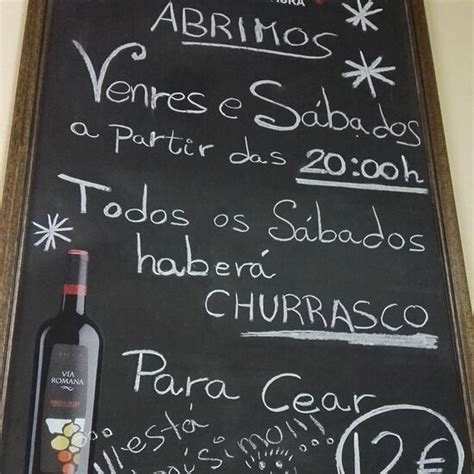 ABRIMOS
Venres e Sábados
a partir das 20:00h
Todos os Sábados
haberá
CHURRASCO
Para Cear
está
12€
VÍA
ROMANA